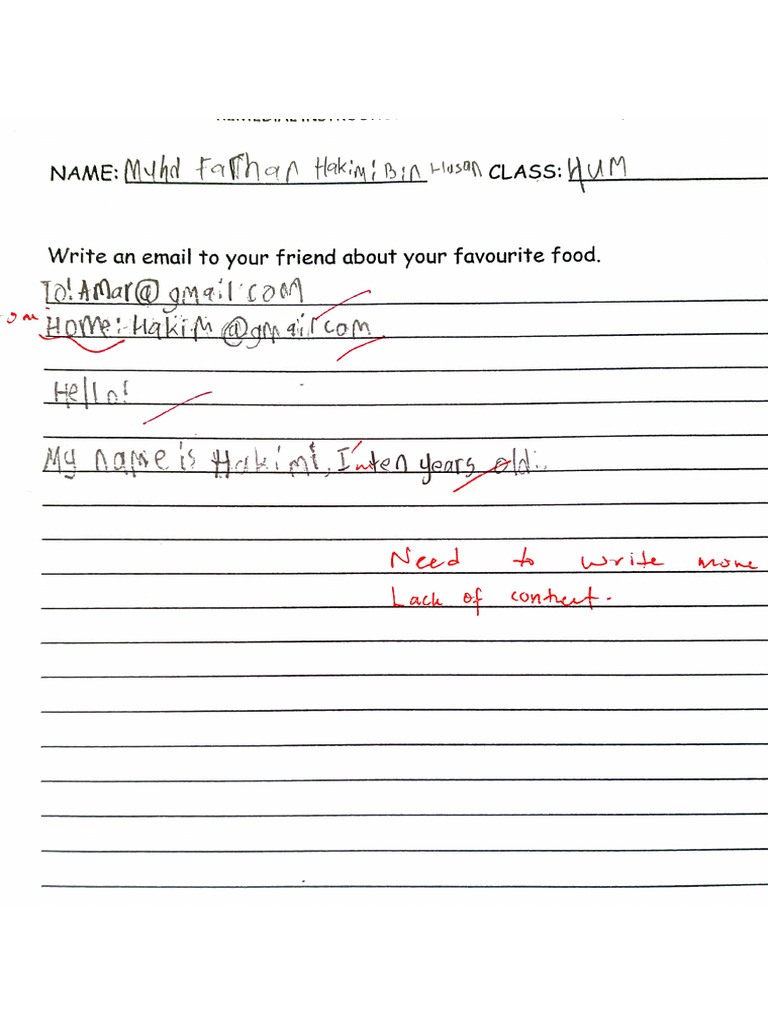 NAME: Myhd Farhan Hakimi Bin Hasan CLASS: HUM
Write an email to your friend about your favourite food.
To! Amar@gmail.com
Home: Hakim@gmail.com
Hello!
My name is Hakimi, I'm ten years old.
Need to write more
Lack of content.